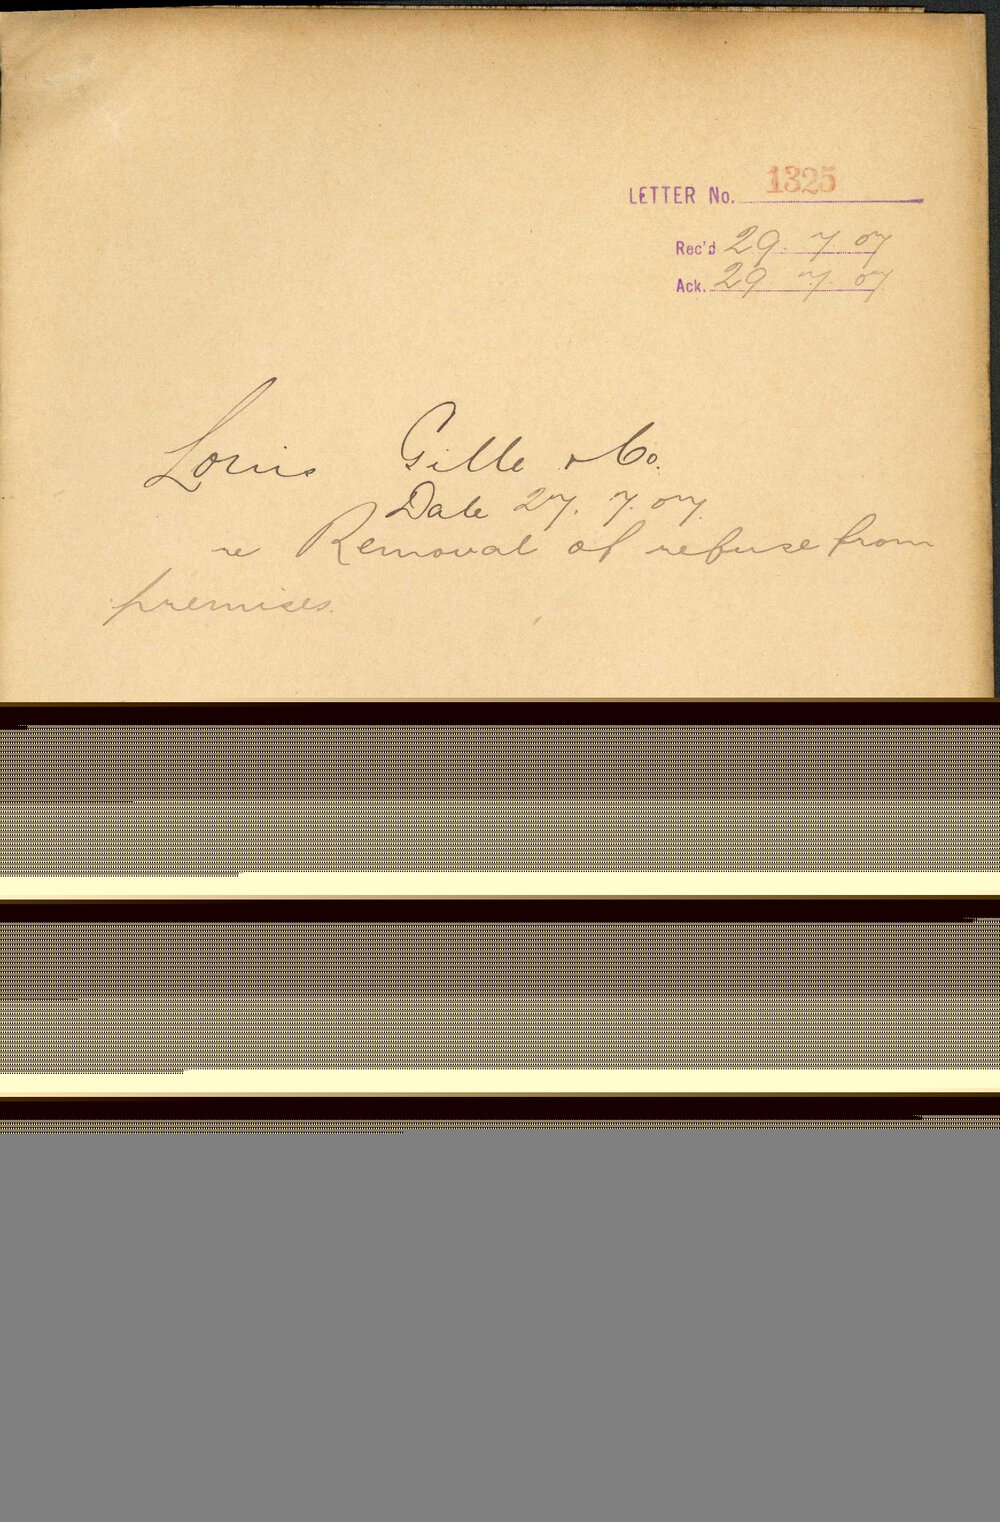 LETTER No. 1325
Rec'd 29. 7. 07
Ack. 29 7. 07
Louis Gille & Co.
Date 27. 7. 07.
re Removal of refuse from
premises.